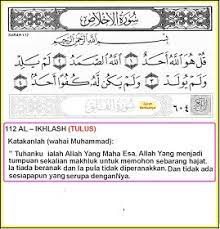 سُورَةُ الإِخْلَاصِ
بِسْمِ اللَّهِ الرَّحْمَٰنِ الرَّحِيمِ
قُلْ هُوَ اللَّهُ أَحَدٌ ۝ اللَّهُ الصَّمَدُ ۝ لَمْ يَلِدْ
وَلَمْ يُولَدْ ۝ وَلَمْ يَكُن لَّهُ كُفُوًا أَحَدٌ ۝
٦٠٤
112 AL – IKHLASH (TULUS)
Katakanlah (wahai Muhammad):
" Tuhanku ialah Allah Yang Maha Esa. Allah Yang menjadi
tumpuan sekalian makhluk untuk memohon sebarang hajat.
Ia tiada beranak dan Ia pula tidak diperanakkan. Dan tidak ada
sesiapapun yang serupa denganNya.